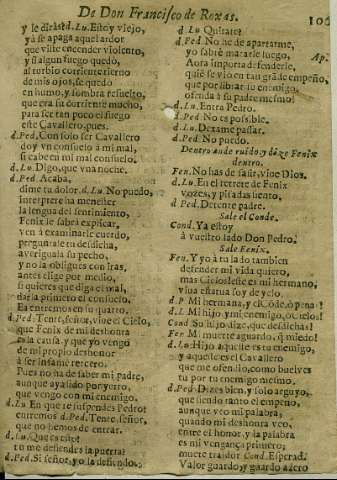 De Don Francisco de Roxas.
106
y le dirás? d. Lu. Estoy viejo,
ya se apaga aquel ardor
que viste encender violento,
y si algun fuego quedó,
al turbio corriente
de mis ojos, se quedò
en humo, y sombra resuelto,
que era su corriente mucho,
para ser tan poco el fuego
este Cavallero, pues.
d. Ped. Con solo ser Cavallero
doy vn consuelo à mi mal,
si cabe en mi mal consuelo.
d. Lu. Digo, que vna noche.
d. Ped. Acaba,
dime tu dolor. d. Lu. No puedo,
interprete ha menester
la lengua del sentimiento,
Fenix le sabrà explicar,
ven à examinarle cuerdo,
preguntale tu desdicha,
averiguala su pecho,
y no la obligues con iras,
antes elige por medio,
si quieres que diga el mal,
darla primero el consuelo.
Ea entremos en su quarto,
d. Ped. Tente, señor, vive el Cielo,
que Fenix de mi deshonra
es la causa, y que yo vengo
de mi propio deshonor
à ser infame tercero.
Pues no ha de saber mi padre,
aunque aya sido por yerro,
que vengo con mi enemigo.
d. Lu. En que te suspendes Pedro?
entremos d. Ped. Tente, señor,
que no hemos de entrar.
d. Lu. Que es esto?
tu me defiendes la puerta?
d. Ped. Si señor, yo la defiendo.
d. Lu. Quitate?
d. Ped. No he de apartarme,
yo sabrè matarle luego, Ap.
Aora importa defenderle,
quiè se viò en tan grãde empeño,
que por librar lo enemigo,
ofenda à su padre mesmo!
d. Lu. Entra Pedro.
d. Ped. No es possible.
d. Lu. Dexame passar.
d. Ped. No puedo.
Dentro ande ruido, y dize Fenix
dentro.
Fen. No has de salir, vive Dios.
d. Lu. En el retrete de Fenix
vozes, y pisadas siento,
d. Ped. Detente padre.
Sale el Conde.
Cond. Ya estoy
à vuestro lado Don Pedro.
Sale Fenix.
Fen. Y yo à tu lado tambien
defender mi vida quiero,
mas Cielos! este es mi hermano,
viva estatua soy de yelo.
d. P. Mi hermana, y el Cõde, ò penas!
d. L. Mi hijo, y mi enemigo, ò Cielos!
Cond. Su hijo dize, que desdichas!
Fen. Mi muerte aguardo, q̃ miedo!
d. Lu. Hijo aqueste es tu enemigo,
y aqueste es el Cavallero
que me ofendio, como buelves
tu por tu enemigo mesmo.
d. Ped. Dizes bien, y solo arguyo,
que siendo tanto el empeño,
aunque veo mi palabra,
quando mi deshonra veo,
entre el honor, y la palabra
es mi vengança primero;
muera traidor Cond. Esperad.
Valor guardo, y guardo azero